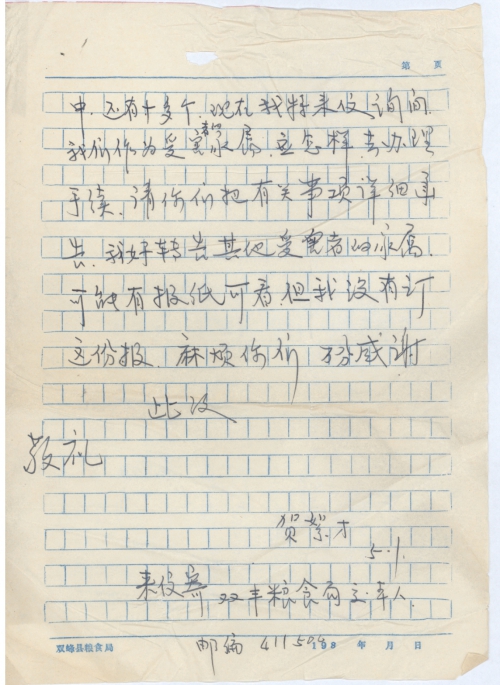 第 页
中.还有十多个.现在我特来信询问.
我们作为受害者的家属.应怎样去办理
手续.请你们把有关事项详细再
告.我好转告其他受害者的家属.
可能有报纸可看.但我没有订
这份报.麻烦你们 不勝感谢
此致
敬礼
贺
5.1.
来信寄 双丰粮食局 人.
双峰县粮食局 邮编 411504 198 年 月 日